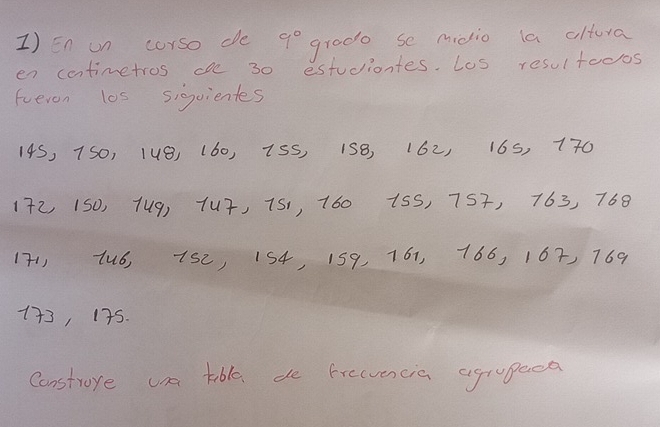 1) En un curso de 9º grado se midio la altura
en centimetros de 30 estudiantes. Los resultados
fueron los siguientes
145, 150, 148, 160, 155, 158, 162, 165, 170
172, 150, 149, 147, 151, 160 155, 157, 163, 168
171, 146, 152, 154, 159, 161, 166, 167, 169
173, 175.
Construye una tabla de frecuencia agrupada